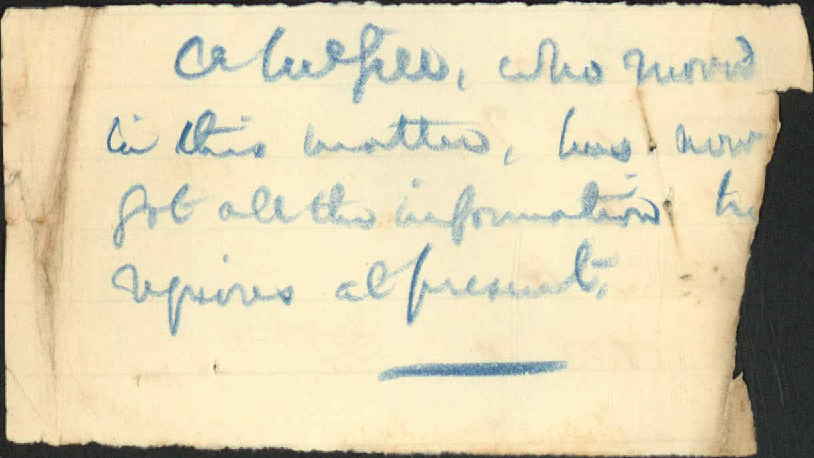 who moved
in this matter, has now
got all the information he
requires at present.